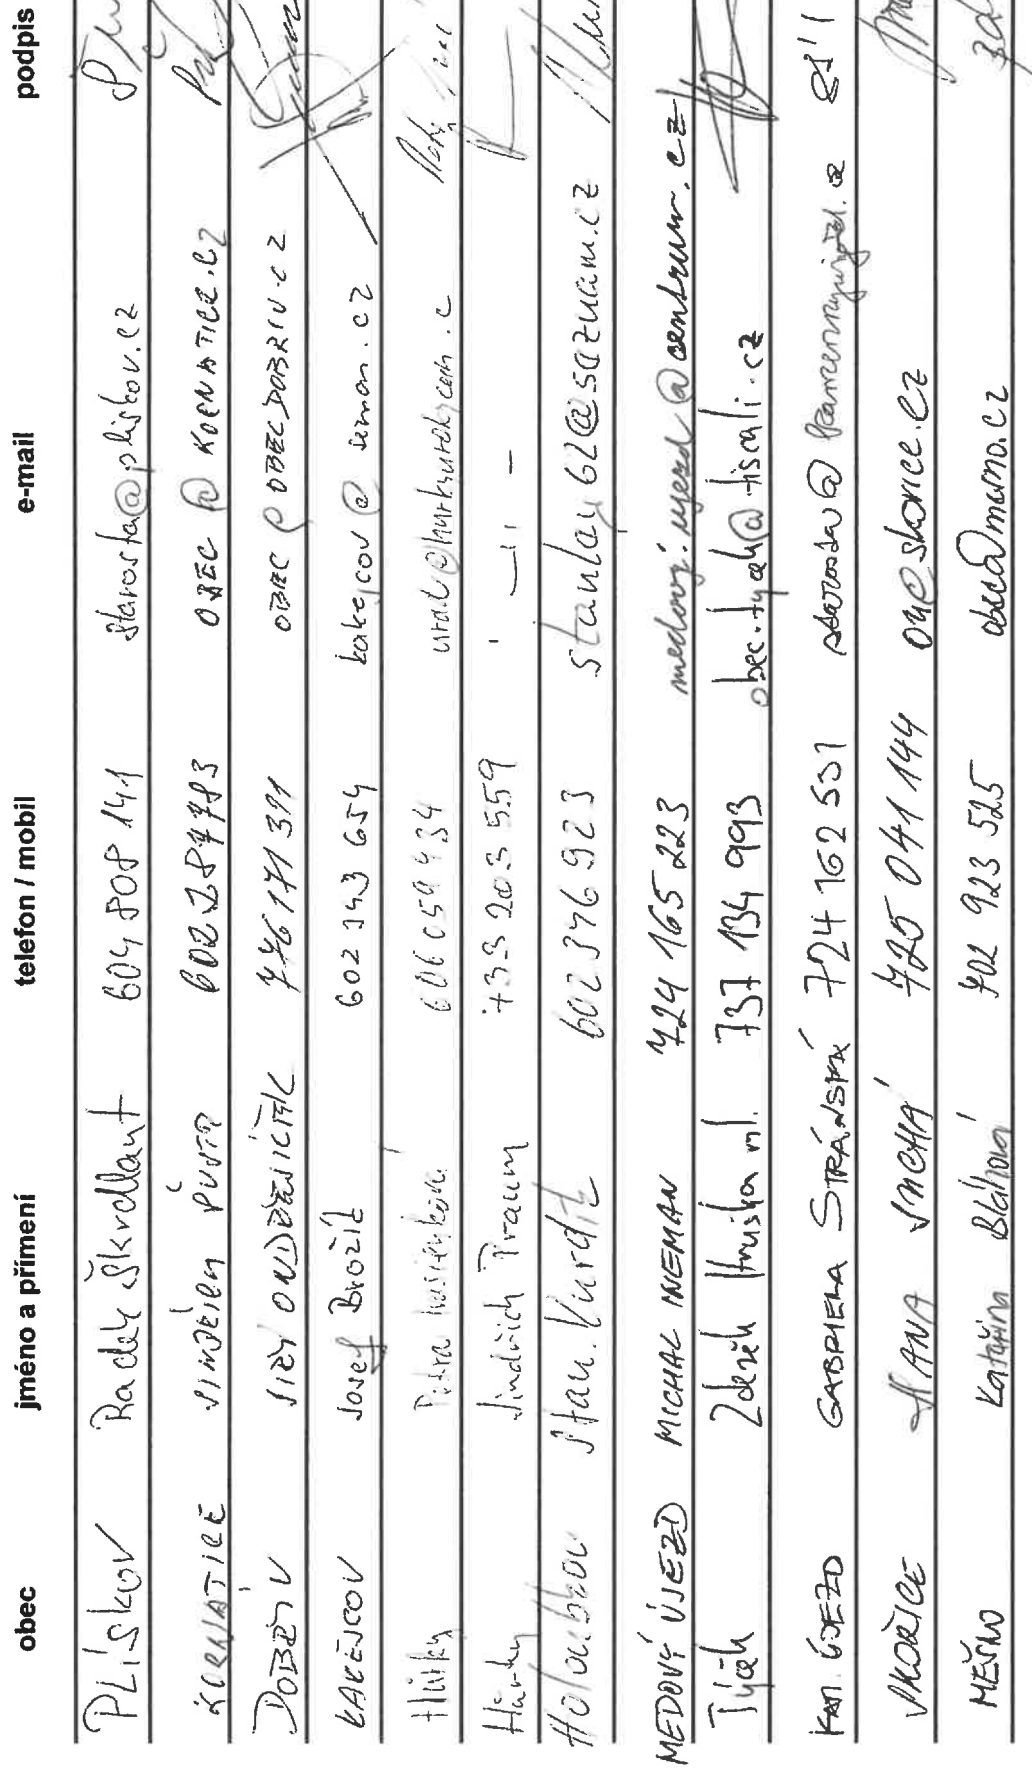 obec jméno a přímení telefon / mobil e-mail podpis
PLískov Radek Škvdlant 604 808 141 starosta@pliskov.cz
KORNATICE JINDŘICH 602287783 OBEC @ KORNATICE.CZ
DOBŘÍV JIŘÍ ONDŘEJÍČEK 776171391 OBEC @ OBECDOBRIV.CZ
KAKEJCOV Josef Brožík 602 343 654 kakejcov @ .cz
Hůrky Petra 606059434
Hůrky Jindřich Traum 733 203 559 - 11 -
Holoubkov Stan. 602346923 stanlay62@seznam.cz
MEDOVÝ ÚJEZD MICHAL INEMAN 724 165 223 medovy.ujezd@centrum.cz
Týček Zdeněk Hruška ml. 737 134 993 obec.tycek@tiscali.cz
KAM. ÚJEZD GABRIELA STRÁNSKÁ 724 162 531 starosta@kamennyujezd.cz
SKOŘICE HANA SUCHÁ 725 041 144 ou@skorice.cz
MEŠNO Kateřina Bláhová 702 923 525 obec@mesno.cz